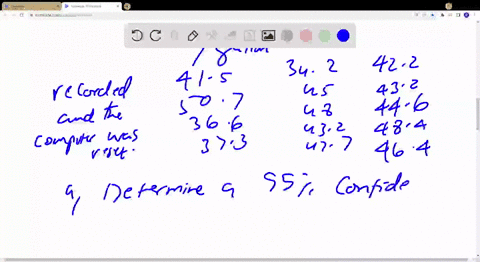 / gallon
41.5 34.2 42.2
recorded 50.7 45 43.2
and the 36.6 48 44.6
computer was 37.3 43.2 48.4
reset. 47.7 46.4
a, Determine a 95% Confide